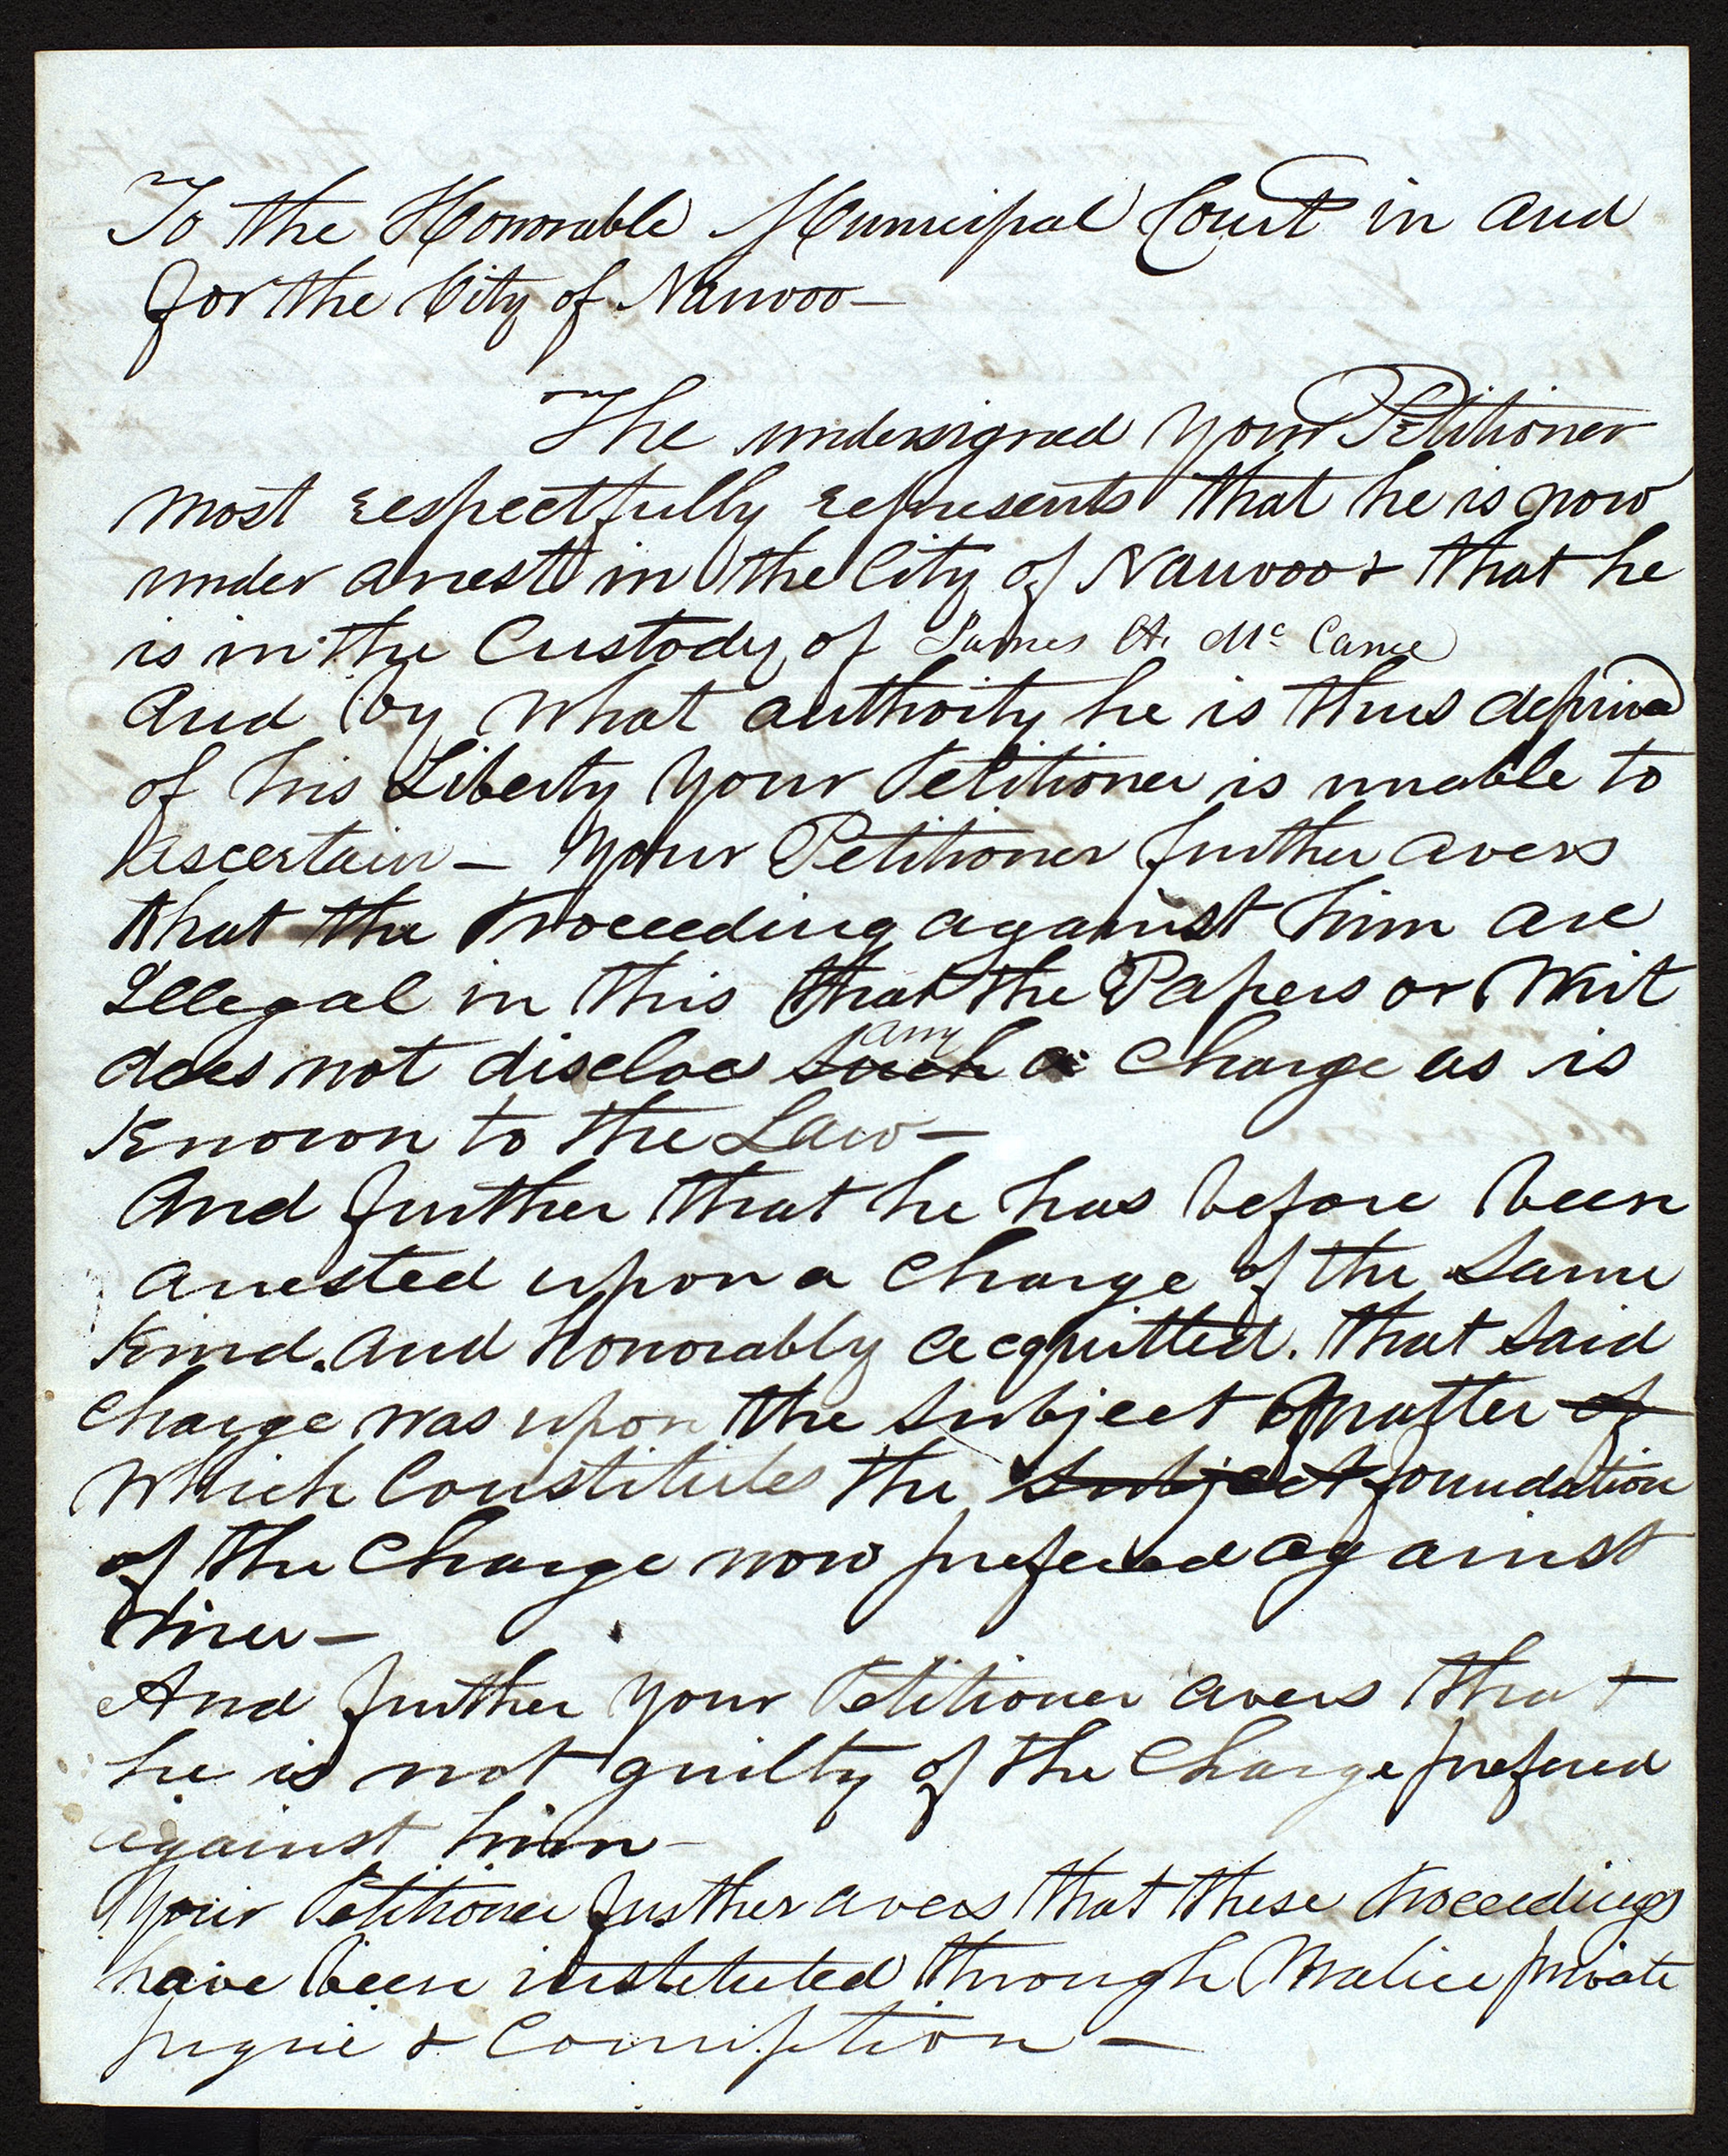 To the Honorable Municipal Court in and
for the City of Nauvoo—
The undersigned your Petitioner
most respectfully represents that he is now
under arrest in the City of Nauvoo & that he
is in the Custody of James H. Mc Cann
And by what authority he is thus deprived
of his Liberty your Petitioner is unable to
ascertain— Your Petitioner further avers
that the Proceeding against him are
Illegal in this that the Papers or Writ
does not disclose such any a Charge as is
Known to the Law—
And further that he has before been
arrested upon a charge of the same
Kind. and honorably acquitted. that said
charge was upon the subject matter of
which Constitutes the subject foundation
of the Charge now prefered against
him—
And further your Petitioner avers that
he is not guilty of the Charge prefered
against him—
Your Petitioner further avers that these proceedings
have been instituted through Malice private
pique & Corruption—